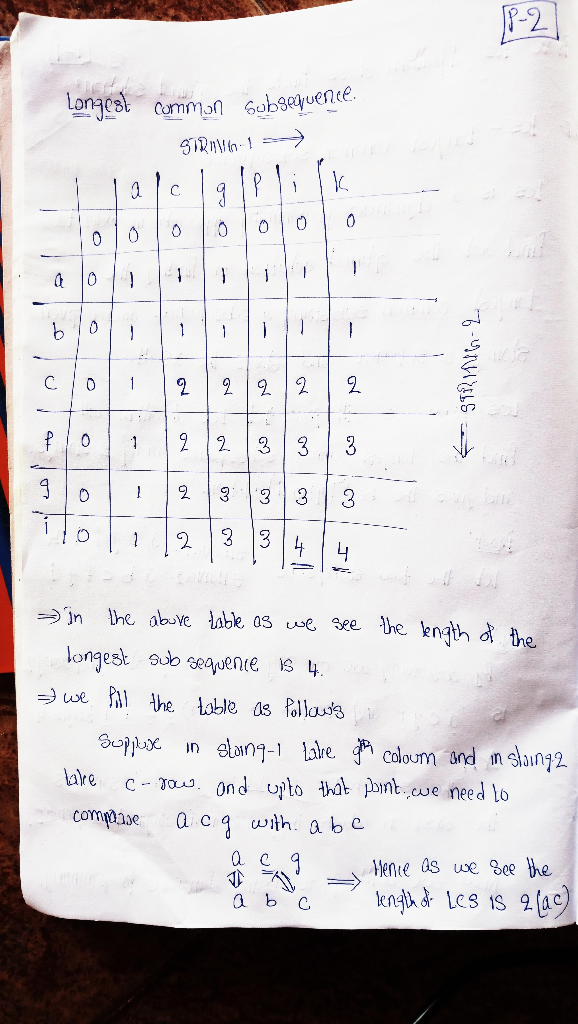 P-2
Longest common subsequence.
STRING-1 →
a c g p i k
0 0 0 0 0 0 0
a 0 1 1 1 1 1 1
b 0 1 1 1 1 1 1
c 0 1 2 2 2 2 2
p 0 1 2 2 3 3 3
g 0 1 2 3 3 3 3
i 0 1 2 3 3 4 4
← STRING-2
⇒ in the above table as we see the length of the
longest sub sequence is 4.
⇒ we fill the table as follow's
Suppose in string-1 take gth coloum and in string2
take c-row. and upto that point, we need to
compare a c g with. a b c
a c g
a b c
⇒ Hence as we see the
length of LCS is 2 (ac)